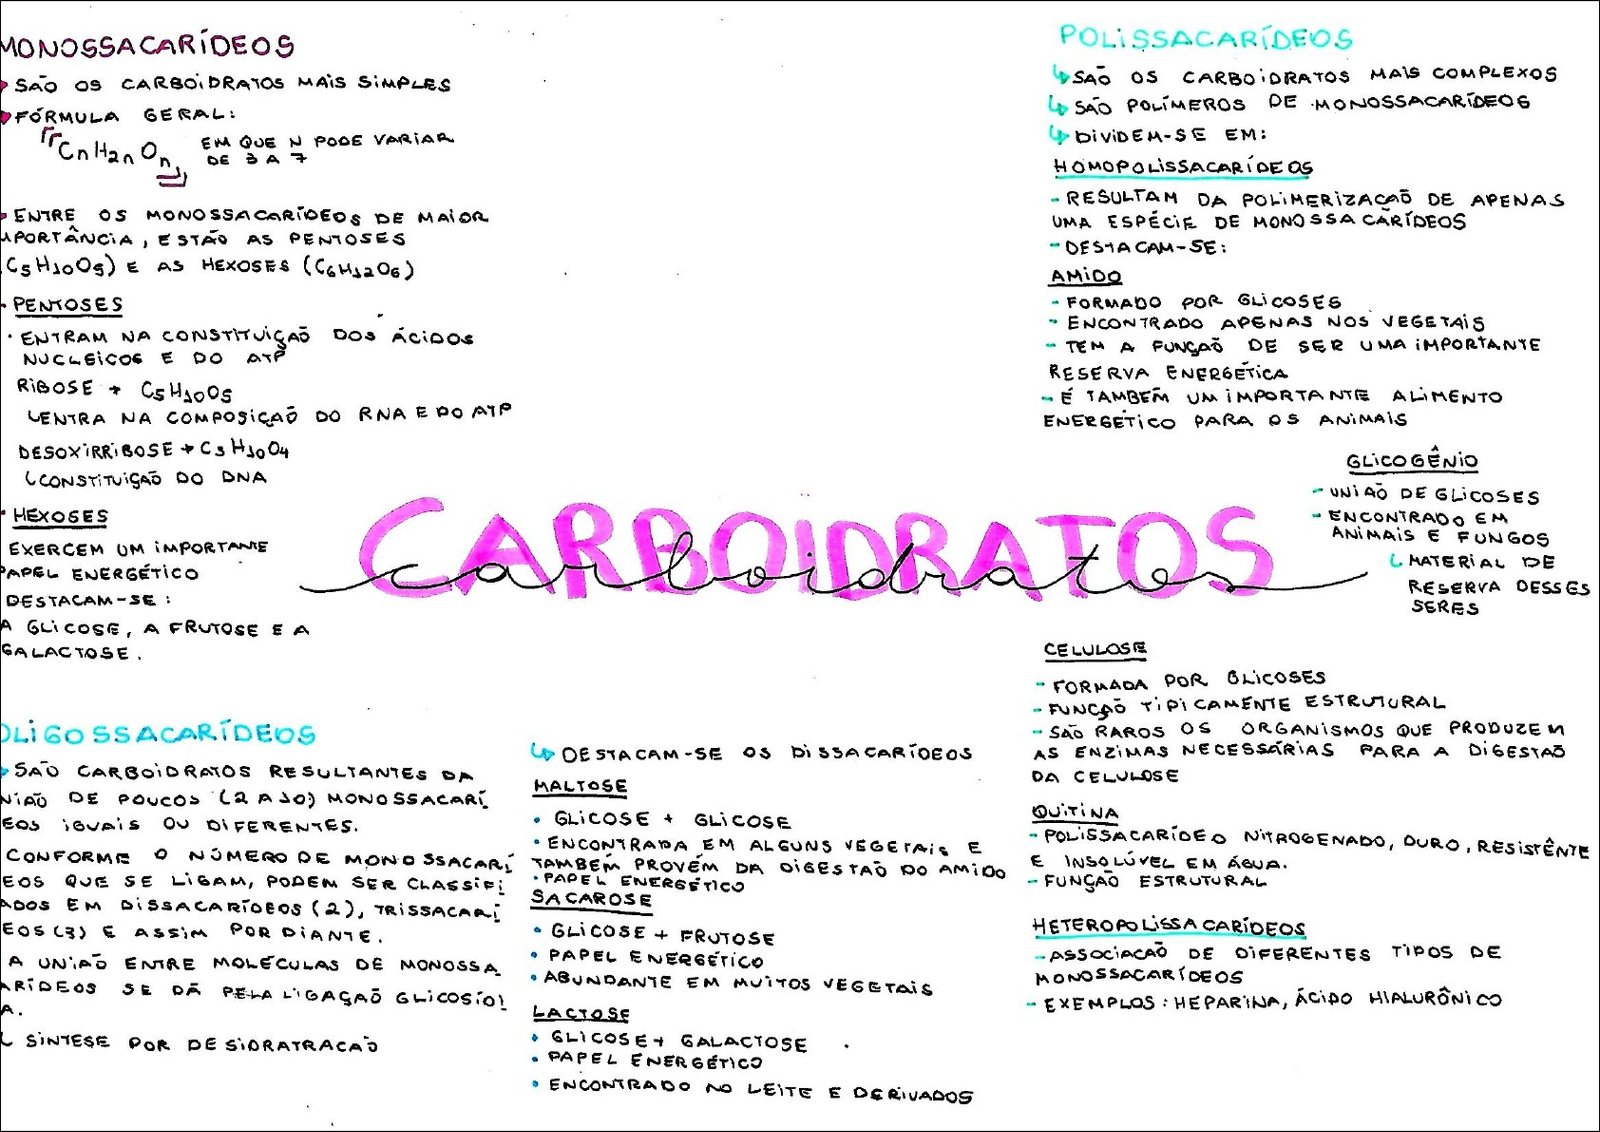 MONOSSACARÍDEOS
SÃO OS CARBOIDRATOS MAIS SIMPLES
FÓRMULA GERAL:
CnH2nOn EM QUE N PODE VARIAR
DE 3 A 7
ENTRE OS MONOSSACARÍDEOS DE MAIOR
MPORTÂNCIA, ESTÃO AS PENTOSES
C5H10O5) E AS HEXOSES (C6H12O6)
PENTOSES
· ENTRAM NA CONSTITUIÇÃO DOS ÁCIDOS
NUCLEICOS E DO ATP
RIBOSE → C5H10O5
ENTRA NA COMPOSIÇÃO DO RNA E DO ATP
DESOXIRRIBOSE → C5H10O4
CONSTITUIÇÃO DO DNA
HEXOSES
EXERCEM UM IMPORTANTE
PAPEL ENERGÉTICO
DESTACAM-SE:
A GLICOSE, A FRUTOSE E A
GALACTOSE.
CARBOIDRATOS
carboidratos
OLIGOSSACARÍDEOS
SÃO CARBOIDRATOS RESULTANTES DA
NIÃO DE POUCOS (2 A 10) MONOSSACARÍ
EOS IGUAIS OU DIFERENTES.
CONFORME O NÚMERO DE MONOSSACARÍ
EOS QUE SE LIGAM, PODEM SER CLASSIFI
ADOS EM DISSACARÍDEOS (2), TRISSACARÍ
EOS (3) E ASSIM POR DIANTE.
A UNIÃO ENTRE MOLÉCULAS DE MONOSSA
ARÍDEOS SE DÁ PELA LIGAÇÃO GLICOSÍDI
A.
SINTESE POR DESIDRATRACAO
DESTACAM-SE OS DISSACARÍDEOS
MALTOSE
• GLICOSE + GLICOSE
• ENCONTRADA EM ALGUNS VEGETAIS E
TAMBÉM PROVÉM DA DIGESTÃO DO AMIDO
• PAPEL ENERGÉTICO
SACAROSE
• GLICOSE + FRUTOSE
• PAPEL ENERGÉTICO
• ABUNDANTE EM MUITOS VEGETAIS
LACTOSE
• GLICOSE + GALACTOSE
• PAPEL ENERGÉTICO
• ENCONTRADO NO LEITE E DERIVADOS
POLISSACARÍDEOS
SÃO OS CARBOIDRATOS MAIS COMPLEXOS
SÃO POLÍMEROS DE MONOSSACARÍDEOS
DIVIDEM-SE EM:
HOMOPOLISSACARÍDEOS
- RESULTAM DA POLIMERIZAÇÃO DE APENAS
UMA ESPÉCIE DE MONOSSACARÍDEOS
- DESTACAM-SE:
AMIDO
- FORMADO POR GLICOSES
- ENCONTRADO APENAS NOS VEGETAIS
- TEM A FUNÇÃO DE SER UMA IMPORTANTE
RESERVA ENERGÉTICA
- É TAMBÉM UM IMPORTANTE ALIMENTO
ENERGÉTICO PARA OS ANIMAIS
GLICOGÊNIO
- UNIÃO DE GLICOSES
- ENCONTRADO EM
ANIMAIS E FUNGOS
MATERIAL DE
RESERVA DESSES
SERES
CELULOSE
- FORMADA POR GLICOSES
- FUNÇÃO TIPICAMENTE ESTRUTURAL
- SÃO RAROS OS ORGANISMOS QUE PRODUZEM
AS ENZIMAS NECESSÁRIAS PARA A DIGESTÃO
DA CELULOSE
QUITINA
- POLISSACARÍDEO NITROGENADO, DURO, RESISTÊNTE
E INSOLÚVEL EM ÁGUA.
- FUNÇÃO ESTRUTURAL
HETEROPOLISSACARÍDEOS
- ASSOCIAÇÃO DE DIFERENTES TIPOS DE
MONOSSACARÍDEOS
- EXEMPLOS: HEPARINA, ÁCIDO HIALURÔNICO